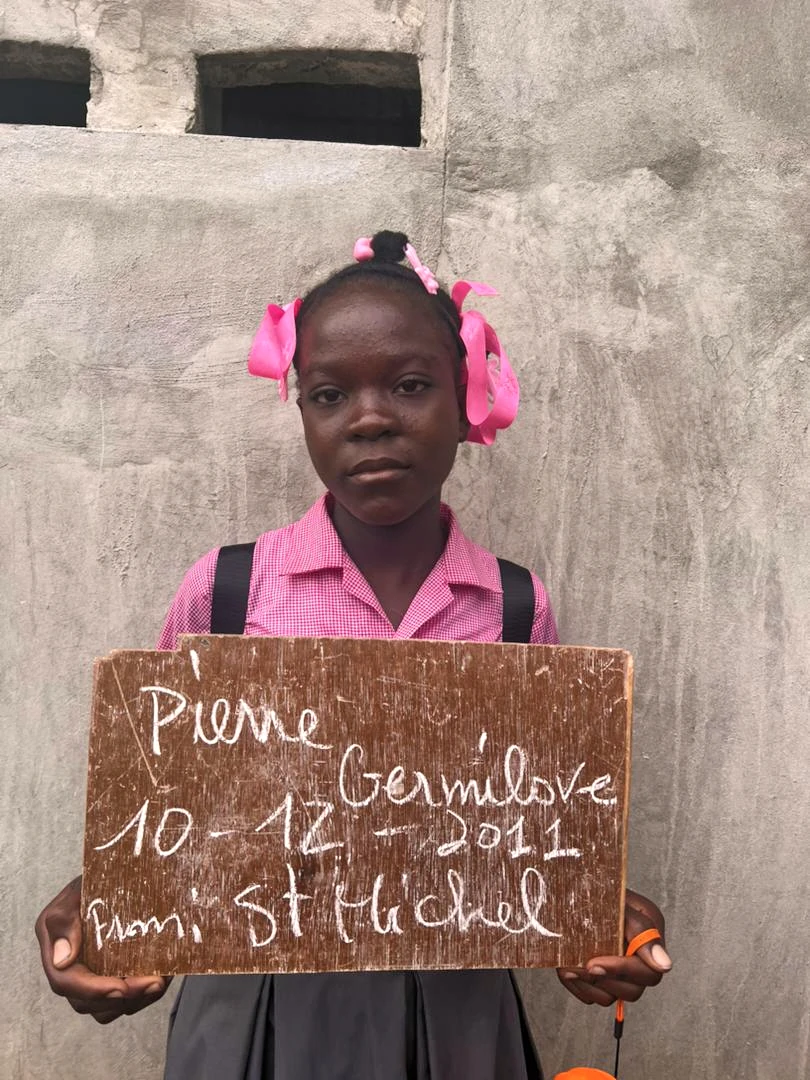 Pierre
Germilove
10-12-2011
From: St Michel